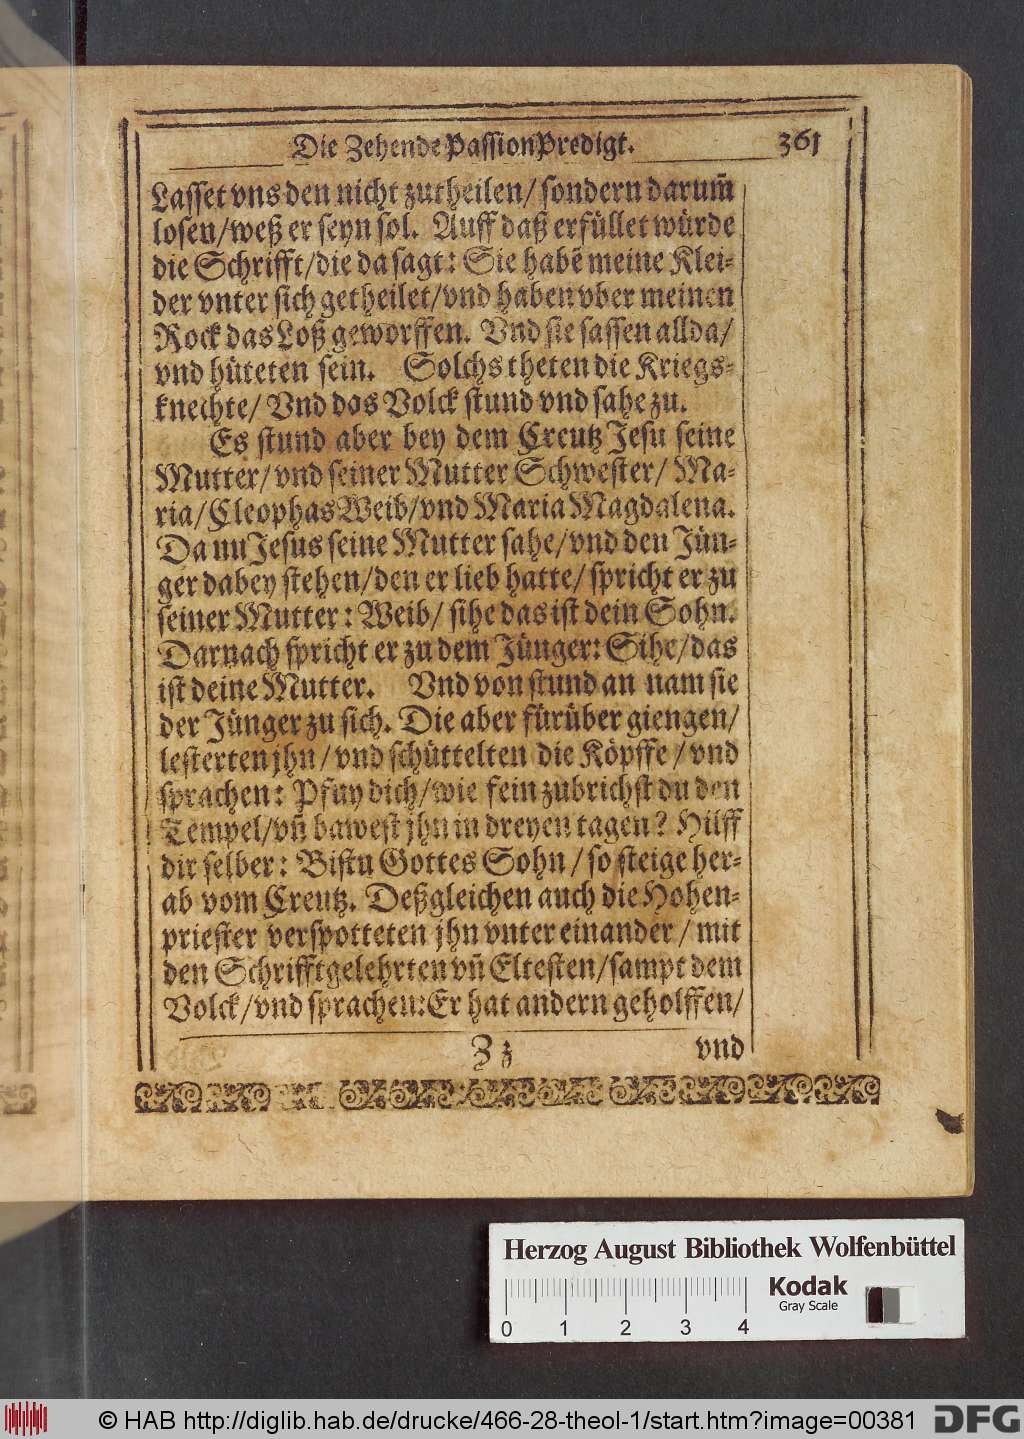 Die Zehende Passion Predigt. 361
Lasset vns den nicht zutheilen/ sondern darum̃
losen/weß er seyn sol. Auff daß erfüllet würde
die Schrifft/die da sagt: Sie habẽ meine Klei-
der vnter sich getheilet/vnd haben vber meinen
Rock das Loß geworffen. Vnd sie sassen allda/
vnd hüteten sein. Solchs theten die Kriegs-
knechte/ Vnd das Volck stund vnd sahe zu.
Es stund aber bey dem Creutz Jesu seine
Mutter/vnd seiner Mutter Schwester/ Ma-
ria/Cleophas Weib/vnd Maria Magdalena.
Da nu Jesus seine Mutter sahe/vnd den Jün-
ger dabey stehen/den er lieb hatte/ spricht er zu
seiner Mutter: Weib/ sihe das ist dein Sohn.
Darnach spricht er zu dem Jünger: Sihe/das
ist deine Mutter. Vnd von stund an nam sie
der Jünger zu sich. Die aber fürüber giengen/
lesterten jhn/vnd schüttelten die Köpffe/vnd
sprachen: Pfuy dich/wie fein zubrichst du den
Tempel/vñ bawest jhn in dreyen tagen? Hilff
dir selber: Bistu Gottes Sohn/so steige her-
ab vom Creutz. Deßgleichen auch die Hohen-
priester verspotteten jhn vnter einander/mit
den Schrifftgelehrten vñ Eltesten/sampt dem
Volck/vnd sprachen:Er hat andern geholffen/
Z z vnd
Herzog August Bibliothek Wolfenbüttel
Kodak
Gray Scale
0 1 2 3 4
© HAB http://diglib.hab.de/drucke/466-28-theol-1/start.htm?image=00381
DFG